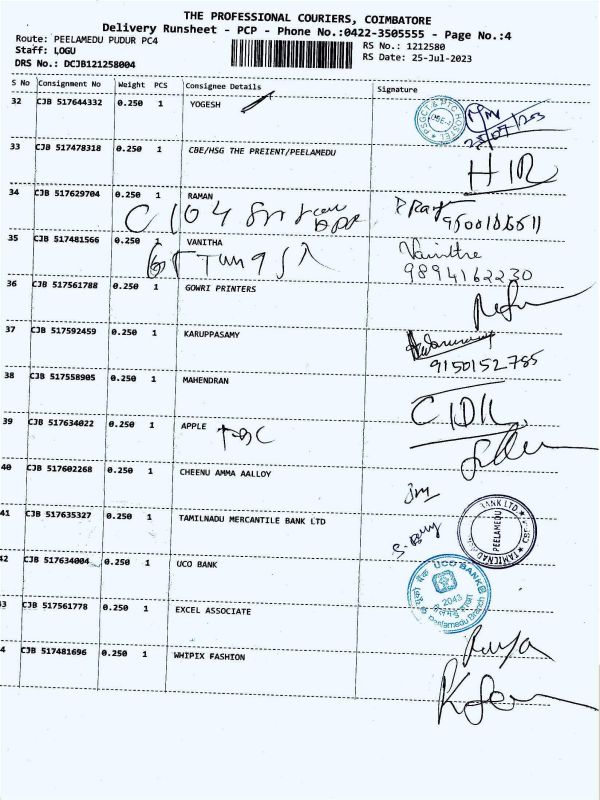 THE PROFESSIONAL COURIERS, COIMBATORE
Delivery Runsheet - PCP - Phone No.:0422-3505555 - Page No.:4
Route: PEELAMEDU PUDUR PC4
RS No.: 1212580
Staff: LOGU
RS Date: 25-Jul-2023
DRS No.: DCJB121258004
S No Consignment No Weight PCS Consignee Details Signature
32 CJB 517644332 0.250 1 YOGESH
33 CJB 517478318 0.250 1 CBE/HSG THE PREIENT/PEELAMEDU
34 CJB 517629704 0.250 1 RAMAN
C 104
35 CJB 517481566 0.250 1 VANITHA Vanithe
9894162230
36 CJB 517561788 0.250 1 GOWRI PRINTERS
37 CJB 517592459 0.250 1 KARUPPASAMY
9150152785
38 CJB 517558905 0.250 1 MAHENDRAN
39 CJB 517634022 0.250 1 APPLE
40 CJB 517602268 0.250 1 CHEENU AMMA AALLOY
41 CJB 517635327 0.250 1 TAMILNADU MERCANTILE BANK LTD
BANK LTD
PEELAMEDU
42 CJB 517634004 0.250 1 UCO BANK
UCO BANK
2043
Peelamedu Branch
3 CJB 517561778 0.250 1 EXCEL ASSOCIATE
4 CJB 517481696 0.250 1 WHIPIX FASHION